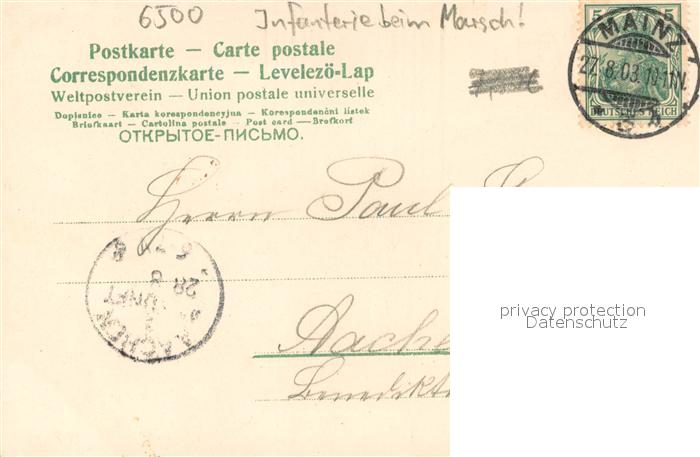 6500 Infanterie beim Marsch!
Postkarte — Carte postale
Correspondenzkarte — Levelezö-Lap
Weltpostverein — Union postale universelle
Dopisnice — Karta korespondencyjna — Korespondenční lístek
Briefkaart — Cartolina postale — Post card — Brefkort
ОТКРЫТОЕ-ПИСЬМО.
5 5
MAINZ
27.8.03.
DEUTSCHES REICH
Herrn Paul
28
8
AACHEN
privacy protection
Datenschutz
Aache
Benedikt